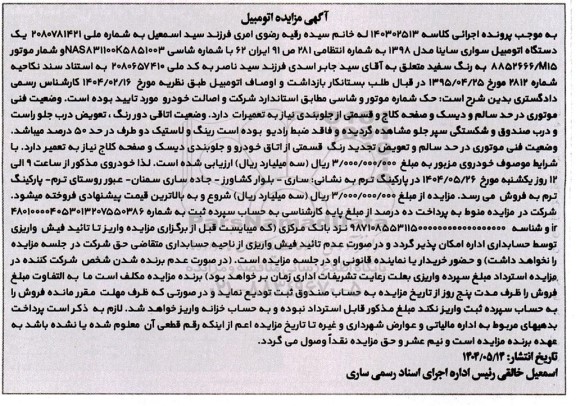 آگهی مزایده اتومبیل
به موجب پرونده اجرائی کلاسه ۱۴۰۳۰۲۵۱۳ له خانم سیده رقیه رضوی امری فرزند سید اسمعیل به شماره ملی ۲۰۸۰۷۸۱۴۲۱ یک
دستگاه اتومبیل سواری ساینا مدل ۱۳۹۸ به شماره انتظامی ۲۸۱ ص ۹۱ ایران ۶۲ با شماره شاسی NAS۸۳۱۱۰۰K۵۸۵۱۰۰۳ و شمار موتور
۸۸۵۲۶۶۶/M۱۵ به رنگ سفید متعلق به آقای سید جابر اسدی فرزند سید ناصر به کد ملی ۲۰۸۰۶۵۷۴۱۰ به استناد سند نکاحیه
شماره ۲۸۱۲ مورخ ۱۳۹۵/۰۴/۲۵ در قبال طلب بستانکار بازداشت و اوصاف اتومبیل طبق نظریه مورخ ۱۴۰۴/۰۲/۱۶ کارشناس رسمی
دادگستری بدین شرح است: حک شماره موتور و شاسی مطابق استاندارد شرکت و اصالت خودرو مورد تایید بوده است. وضعیت فنی
موتوری در حد سالم و دیسک و صفحه کلاج و قسمتی از جلوبندی نیاز به تعمیرات دارد. وضعیت اتاقی دور رنگ ، تعویض درب جلو راست
و درب صندوق و شکستگی سپر جلو مشاهده گردید و فاقد ضبط رادیو بوده است رینگ و لاستیک دو طرف در حد ۵۰ درصد میباشد.
وضعیت فنی موتوری در حد سالم و تعویض تجدید رنگ قسمتی از اتاق خودرو و جلوبندی دیسک و صفحه کلاج نیاز به تعمیر دارد. با
شرایط موصوف خودروی مزبور به مبلغ ۳/۰۰۰/۰۰۰/۰۰۰ ریال (سه میلیارد ریال) ارزیابی شده است. لذا خودروی مذکور از ساعت ۹ الی
۱۲ روز یکشنبه مورخ ۱۴۰۴/۰۵/۲۶ در پارکینگ ترم به نشانی: ساری - بلوار کشاورز - جاده ساری سمنان- عبور روستای ترم- پارکینگ
ترم به فروش می رسد. مزایده از مبلغ ۳/۰۰۰/۰۰۰/۰۰۰ ریال (سه میلیارد ریال) شروع و به بالاترین قیمت پیشنهادی فروخته میشود.
شرکت در مزایده منوط به پرداخت ده درصد از مبلغ پایه کارشناسی به حساب سپرده ثبت به شماره ۴۸۰۱۰۰۰۰۴۰۵۳۰۱۳۲۰۷۵۵۰۳۸۶
ir و شناسه نزد بانک مرکزی (که میبایست قبل از برگزاری مزایده واریز تا تائید فیش واریزی
توسط حسابداری اداره امکان پذیر گردد و در صورت عدم تائید فیش واریزی از ناحیه حسابداری متقاضی حق شرکت در جلسه مزایده
را نخواهد داشت) و حضور خریدار یا نماینده قانونی او در جلسه مزایده است. (در صورت عدم برنده شدن شخص شرکت کننده در
مزایده استرداد مبلغ سپرده واریزی بعلت رعایت تشریفات اداری زمان بر خواهد بود) برنده مزایده مکلف است ما به التفاوت مبلغ
فروش را ظرف مدت پنج روز از تاریخ مزایده به حساب صندوق ثبت تودیع نماید و در صورتی که ظرف مهلت مقرر مانده فروش را
به حساب سپرده ثبت واریز نکند مبلغ مذکور قابل استرداد نبوده و به حساب خزانه واریز خواهد شد. لازم به ذکر است پرداخت
بدهیهای مربوط به اداره مالیاتی و عوارض شهرداری و غیره تا تاریخ مزایده اعم از اینکه رقم قطعی آن معلوم شده یا نشده باشد به
عهده برنده مزایده است و نیم عشر و حق مزایده نقداً وصول می گردد.
تاریخ انتشار: ۱۴۰۴/۰۵/۱۴
اسمعیل خالقی رئیس اداره اجرای اسناد رسمی ساری